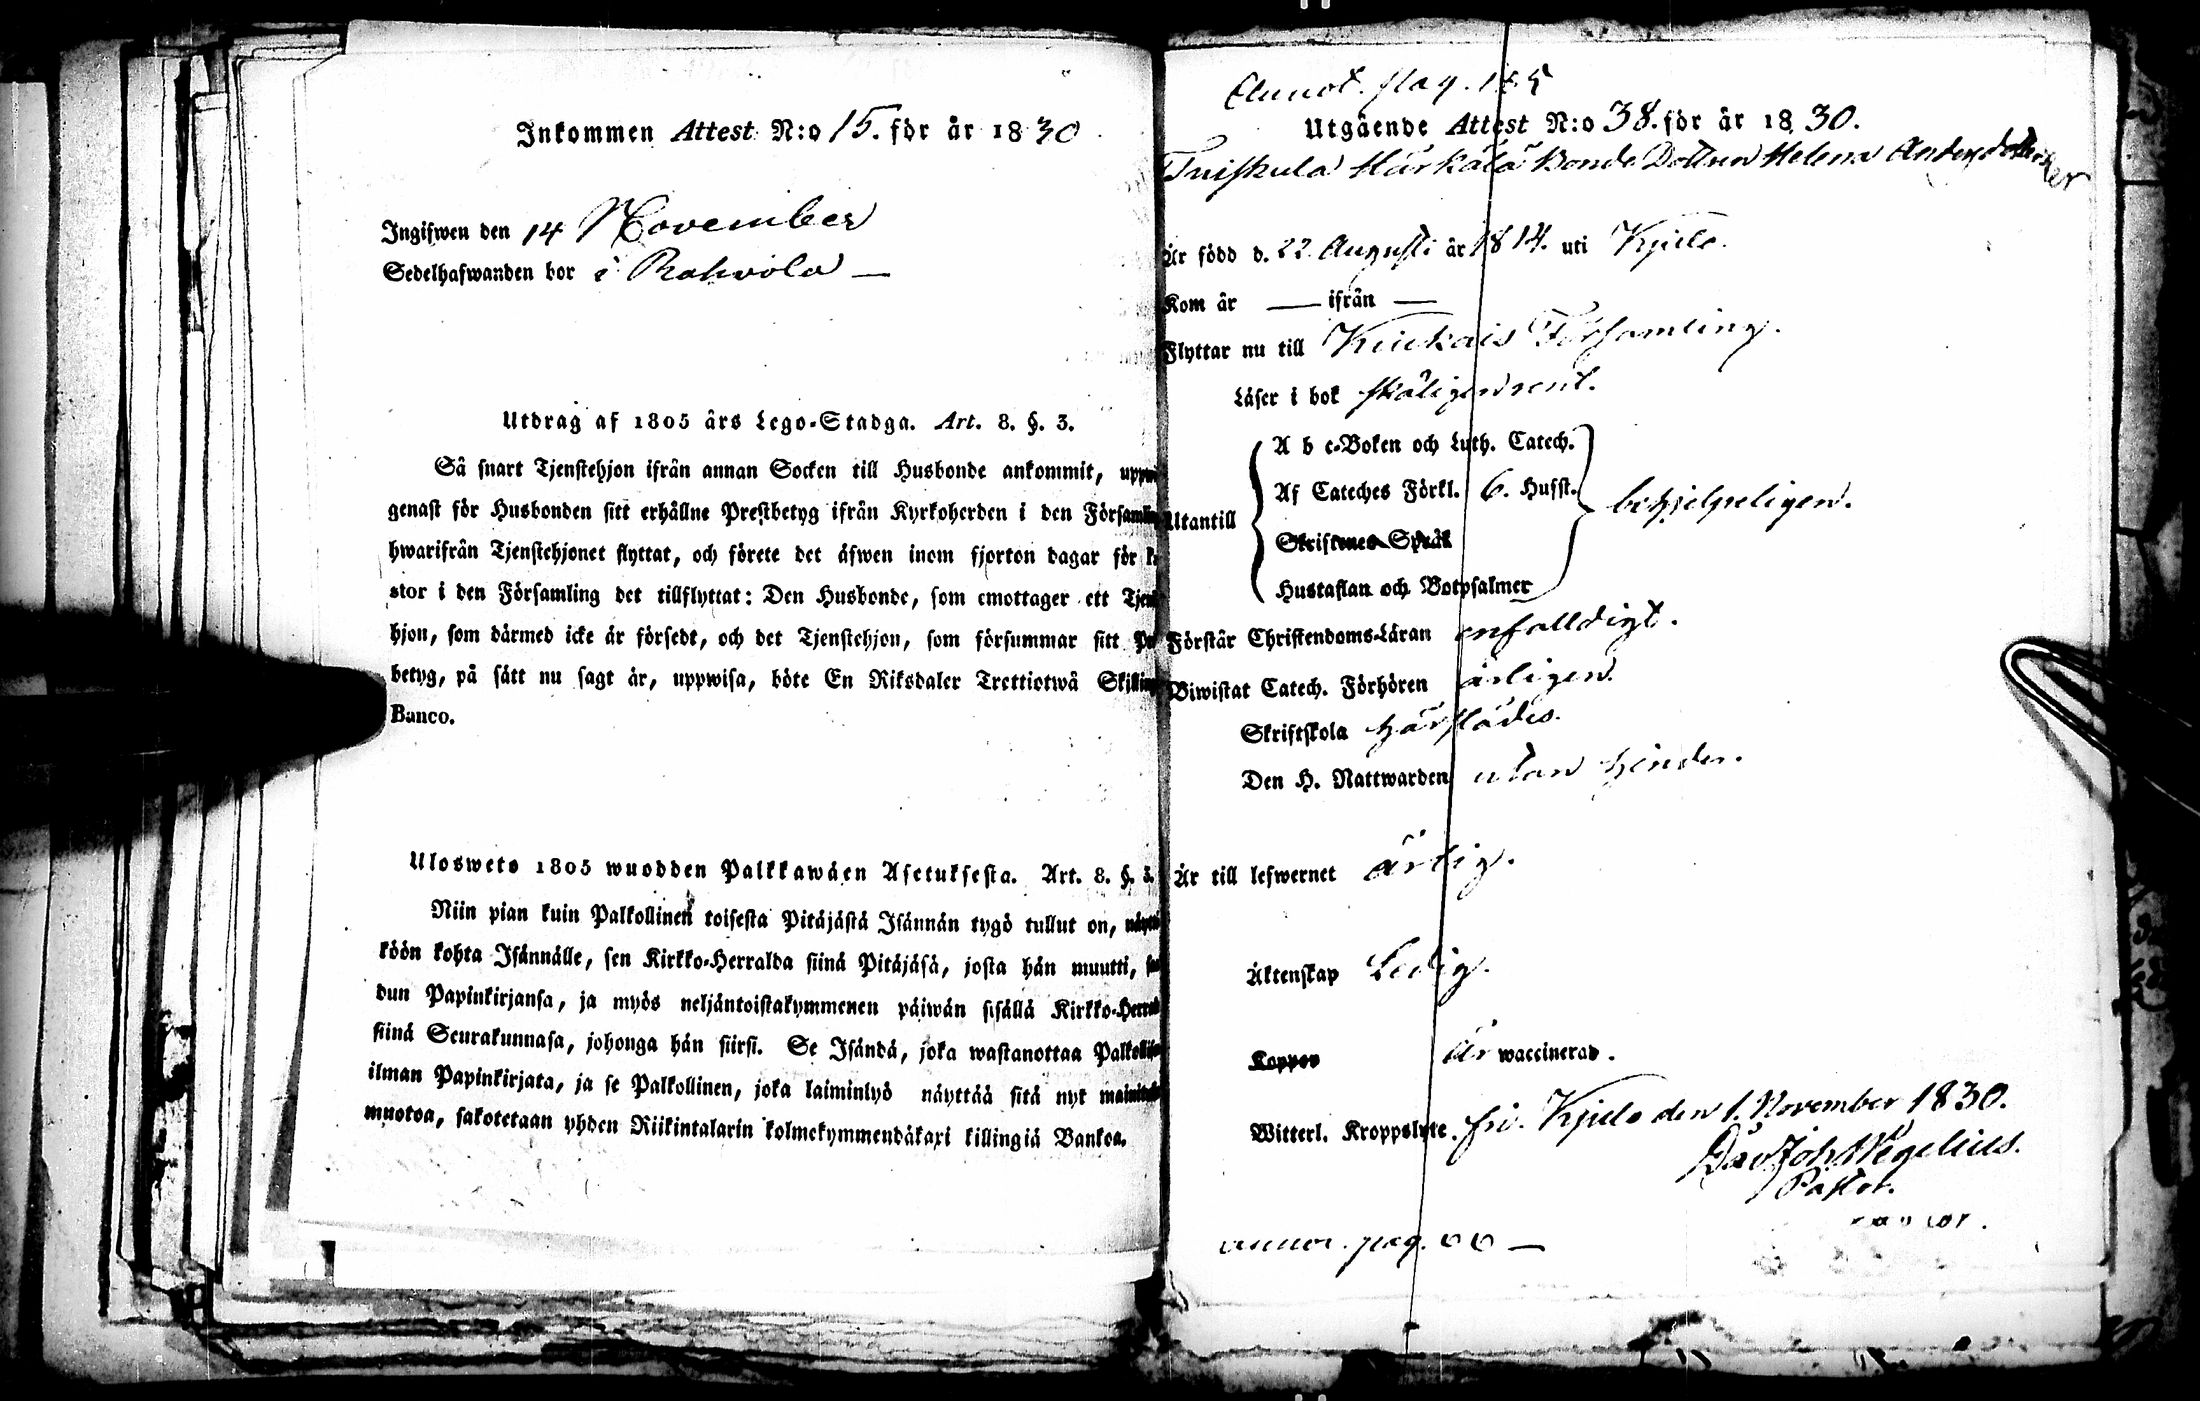 Inkommen Attest N:o 15. för år 1830
Ingifwen den 14 November
Sedelhafwanden bor i Rahvola —
Utdrag af 1805 års Lego-Stadga. Art. 8. §. 3.
Så snart Tjenstehjon ifrån annan Socken till Husbonde ankommit,
genast för Husbonden sitt erhållne Prestbetyg ifrån Kyrkoherden i den
hwarifrån Tjenstehjonet flyttat, och förete det äfwen inom fjorton dagar för
stor i den Församling det tillflyttat: Den Husbonde, som emottager ett
hjon, som därmed icke är försedt, och det Tjenstehjon, som försummar sitt
betyg, på sätt nu sagt är, uppwisa, böte En Riksdaler Trettiotwå
Banco.
Ulosweto 1805 wuodden Palkkawäen Asetuksesta. Art. 8. §. 3.
Niin pian kuin Palkollinen toisesta Pitäjästä Isännän tygö tullut on,
köön kohta Isännälle, sen Kirkko-Herralda siinä Pitäjäsä, josta hän muutti,
dun Papinkirjansa, ja myös neljäntoistakymmenen päiwän sisällä
siinä Seurakunnasa, johonga hän siirsi. Se Isändä, joka wastanottaa
ilman Papinkirjata, ja se Palkollinen, joka laiminlyö näyttää sitä nyt
muotoa, sakotetaan yhden Riikintalarin kolmekymmendäkaxi killingiä Bankoa.
Annot. pag.
Utgående Attest N:o 38. för år 1830.
Bonde Dottren Helena Andersdotter
Är född d. 22 Augusti år 1814. uti Kjulo.
Kom år — ifrån —
Flyttar nu till Kiukais Församling.
Läser i bok skäligen rent.
A b c-Boken och Luth. Catech.
Af Cateches Förkl. 6. Hufst.
Utantill behjelpeligen.
Skriftenes Språk
Hustaflan och Botpsalmer
Förstår Christendoms-Läran enfalldigt.
Biwistat Catech. Förhören årligen.
Skriftskola härstädes.
Den H. Nattwarden utan hinder.
Är till lefwernet ärlig.
Äktenskap Ledig.
Koppor Är waccinerad.
Witterl. Kroppslyte. fri. Kjulo den 1. November 1830.
Dav Joh Wegelius.
Pastor.